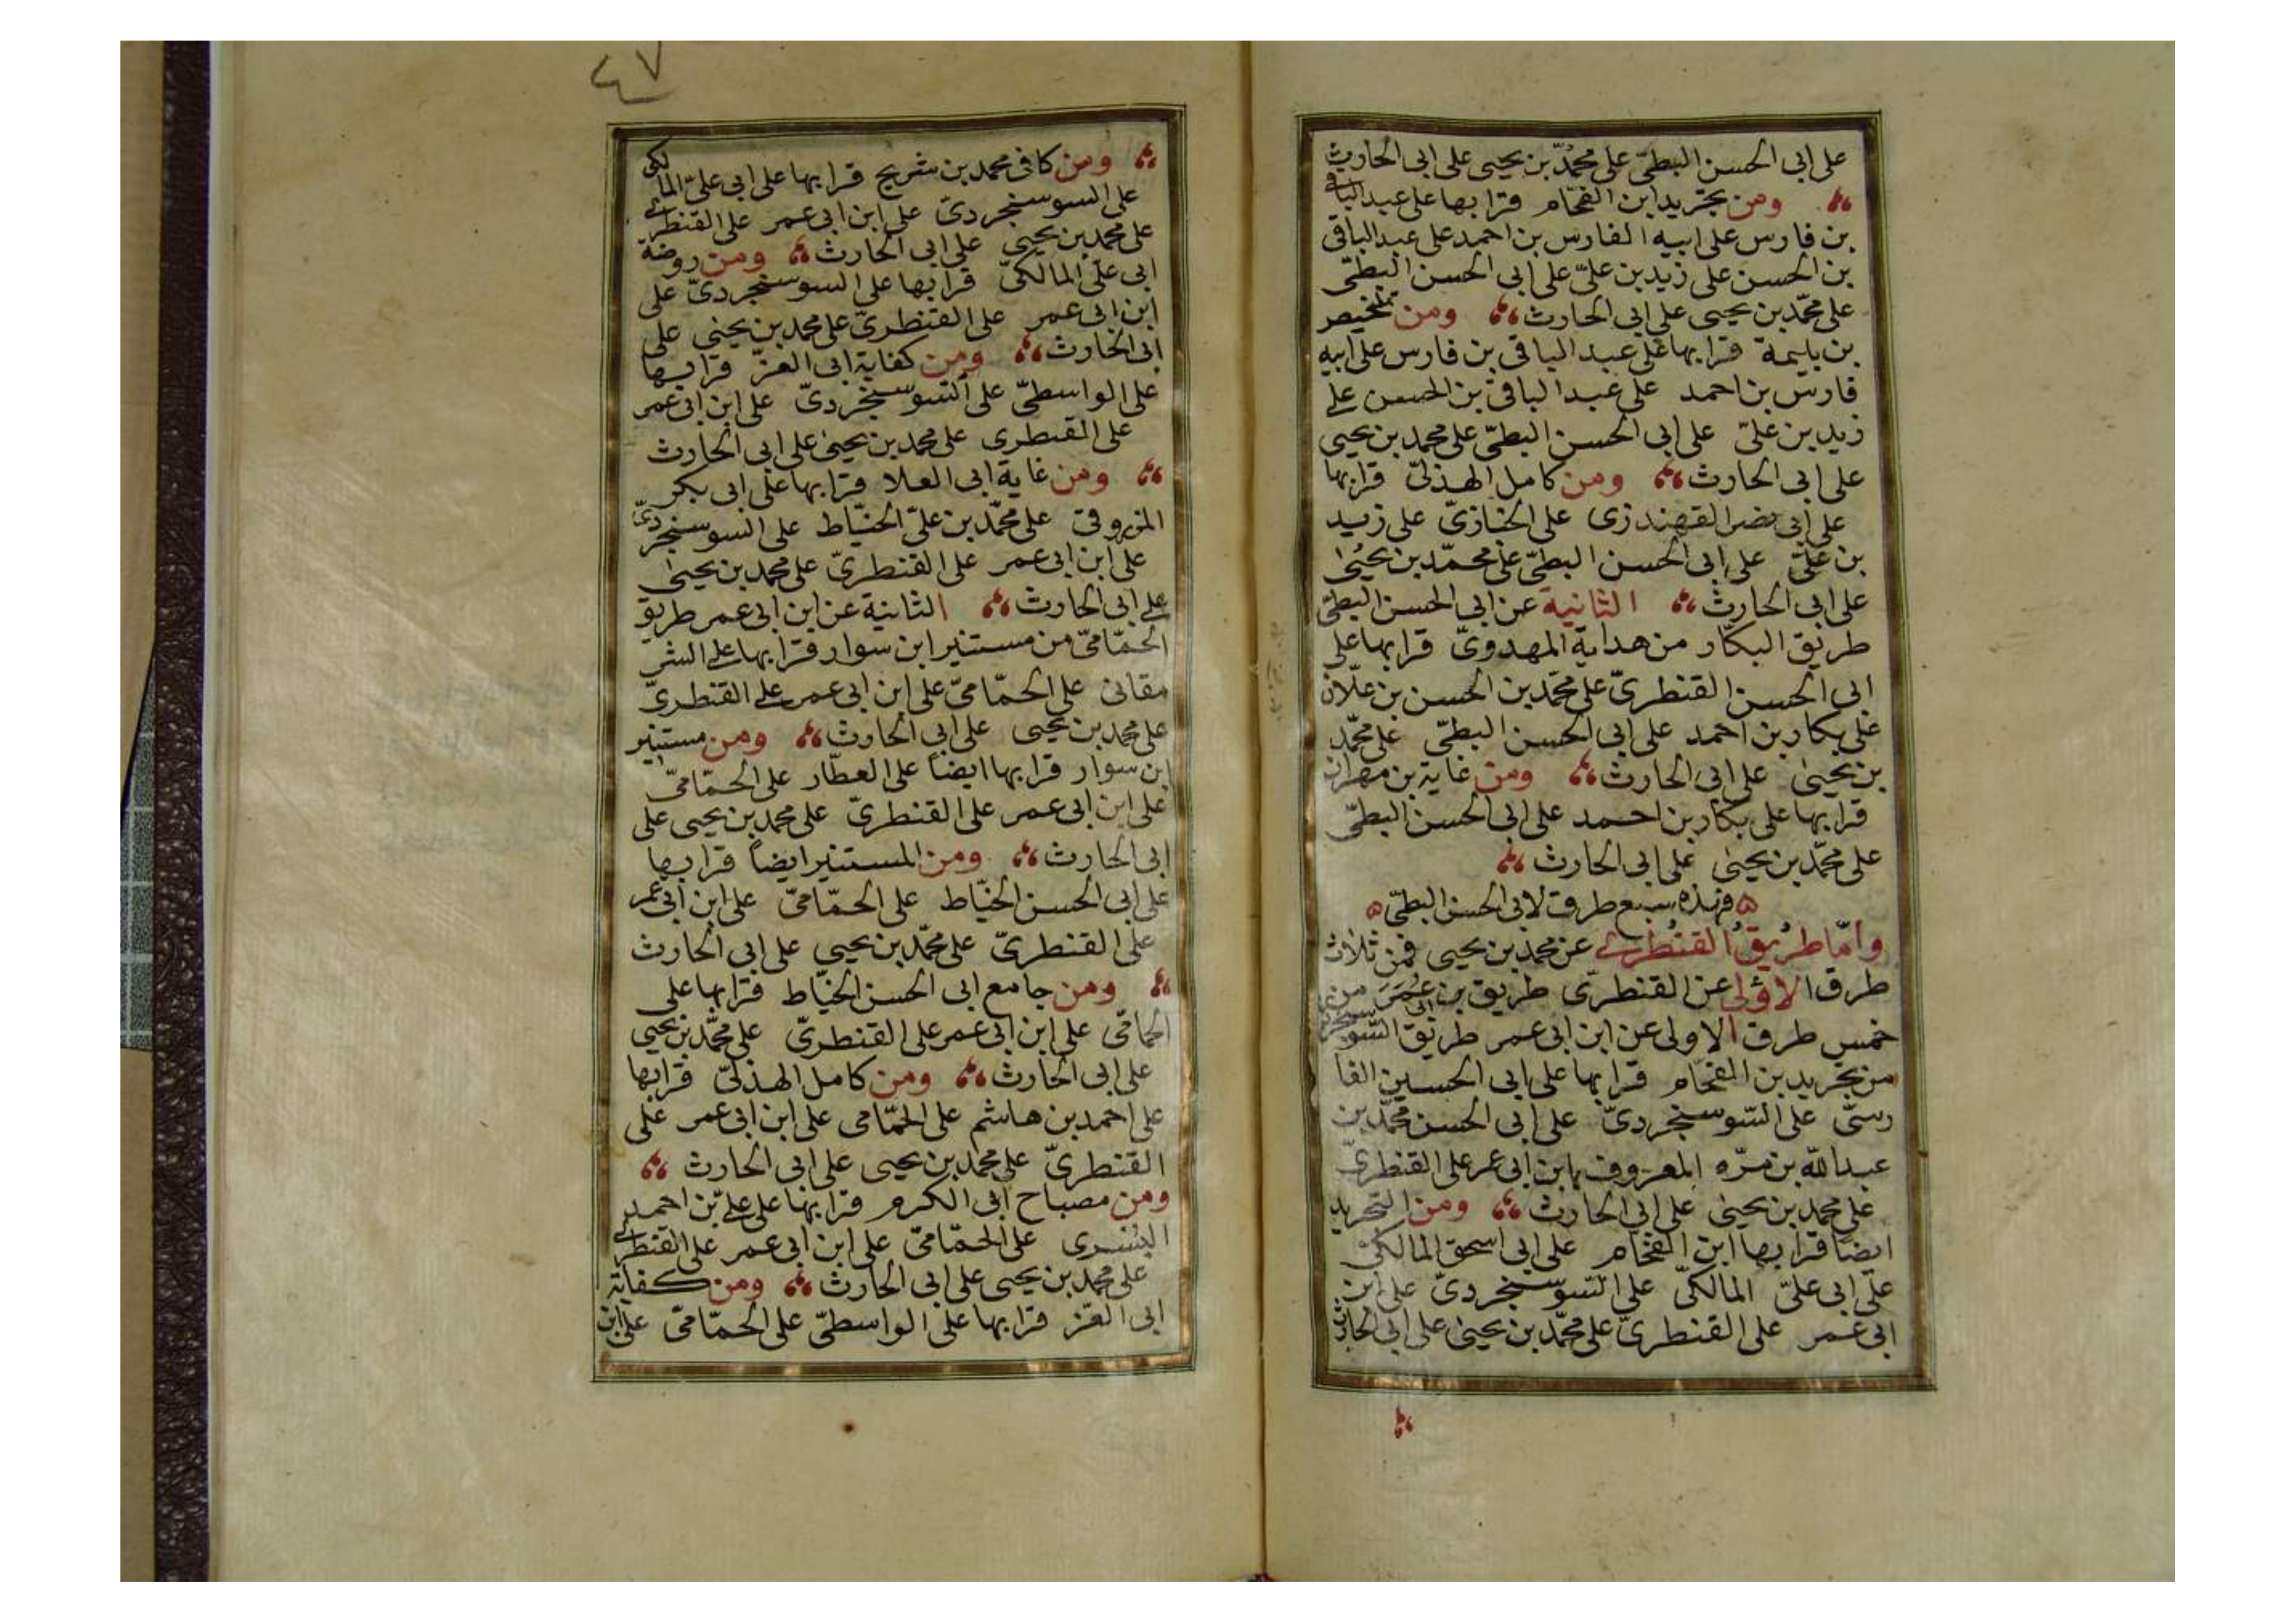 على ابى الحسن البطىّ على محمّد بن يحيى على ابى الحارث
ومن تجريد ابن الفحّام قرا بها على عبد الباقى
بن فارس على ابيه الفارس بن احمد على عبد الباقى
بن الحسن على زيد بن علىّ على ابى الحسن البطىّ
على محمّد بن يحيى على ابى الحارث ومن تلخيص
بن بليمة قرا بها على عبد الباقى بن فارس على ابيه
فارس بن احمد على عبد الباقى بن الحسن على
زيد بن علىّ على ابى الحسن البطىّ على محمد بن يحيى
على ابى الحارث ومن كامل الهذلىّ قرا بها
على ابى نصر القهندزى على الخبازىّ على زيد
بن علىّ على ابى الحسن البطىّ على محمّد بن يحيى
على ابى الحارث الثانية عن ابى الحسن البطىّ
طريق البكّار من هداية المهدوىّ قرا بها على
ابى الحسن القنطرىّ على محمّد بن الحسن بن علّان
على بكار بن احمد على ابى الحسن البطىّ على محمّد
بن يحيى على ابى الحارث ومن غاية بن مهران
قرا بها على بكّار بن احمد على ابى الحسن البطىّ
على محمّد بن يحيى على ابى الحارث
فهذه سبع طرق لابى الحسن البطىّ
وامّا طريق القنطرى عن محمد بن يحيى فمن ثلاث
طرق الاولى عن القنطرىّ طريق بن ابى عمر من
خمس طرق الاولى عن ابن ابى عمر طريق السّوسنجردى
من تجريد بن الفحّام قرا بها على ابى الحسين الفا
رسىّ على السّوسنجردىّ على ابى الحسن محمّد بن
عبد الله بن مرّه المعروف بابن ابى عمر على القنطرىّ
على محمد بن يحيى على ابى الحارث ومن التجريد
ايضا قرا بها ابن الفحّام على ابى اسحق المالكىّ
على ابى علىّ المالكىّ على السّوسنجردىّ على ابن
ابى عمر على القنطرىّ على محمّد بن يحيى على ابى الحارث
٤٧
ومن كافى محمد بن شريح قرا بها على ابى علىّ المالكى
على السوسنجردىّ على ابن ابى عمر على القنطرى
على محمد بن يحيى على ابى الحارث ومن روضة
ابى علىّ المالكىّ قرا بها على السوسنجردىّ على
ابن ابى عمر على القنطرىّ على محمد بن يحيى على
ابى الحارث ومن كفاية ابى العزّ قرا بها
على الواسطىّ على السّوسنجردىّ على ابن ابى عمر
على القنطرى على محمد بن يحيى على ابى الحارث
ومن غاية ابى العلا قرا بها على ابى بكر
المزروفى على محمّد بن علىّ الخيّاط على السوسنجردىّ
على ابن ابى عمر على القنطرىّ على محمد بن يحيى
على ابى الحارث الثانية عن ابن ابى عمر طريق
الحمّامىّ من مستنير ابن سوار قرا بها على الشر
مقانى على الحمّامىّ على ابن ابى عمر على القنطرىّ
على محمد بن يحيى على ابى الحارث ومن مستنير
ابن سوار قرا بها ايضاً على العطّار على الحمّامىّ
على ابن ابى عمر على القنطرىّ على محمد بن يحيى على
ابى الحارث ومن المستنير ايضاً قرا بها
على ابى الحسن الخيّاط على الحمّامىّ على ابن ابى عمر
على القنطرىّ على محمّد بن يحيى على ابى الحارث
ومن جامع ابى الحسن الخيّاط قرا بها على
الحمّامى على ابن ابى عمر على القنطرىّ على محمّد بن يحيى
على ابى الحارث ومن كامل الهذلىّ قرا بها
على احمد بن هاشم على الحمّامى على ابن ابى عمر على
القنطرىّ على محمد بن يحيى على ابى الحارث
ومن مصباح ابى الكرم قرا بها على علىّ بن احمد
البسرى على الحمّامىّ على ابن ابى عمر على القنطرى
على محمد بن يحيى على ابى الحارث ومن كفاية
ابى العّز قرا بها على الواسطىّ على الحمّامىّ على ابن